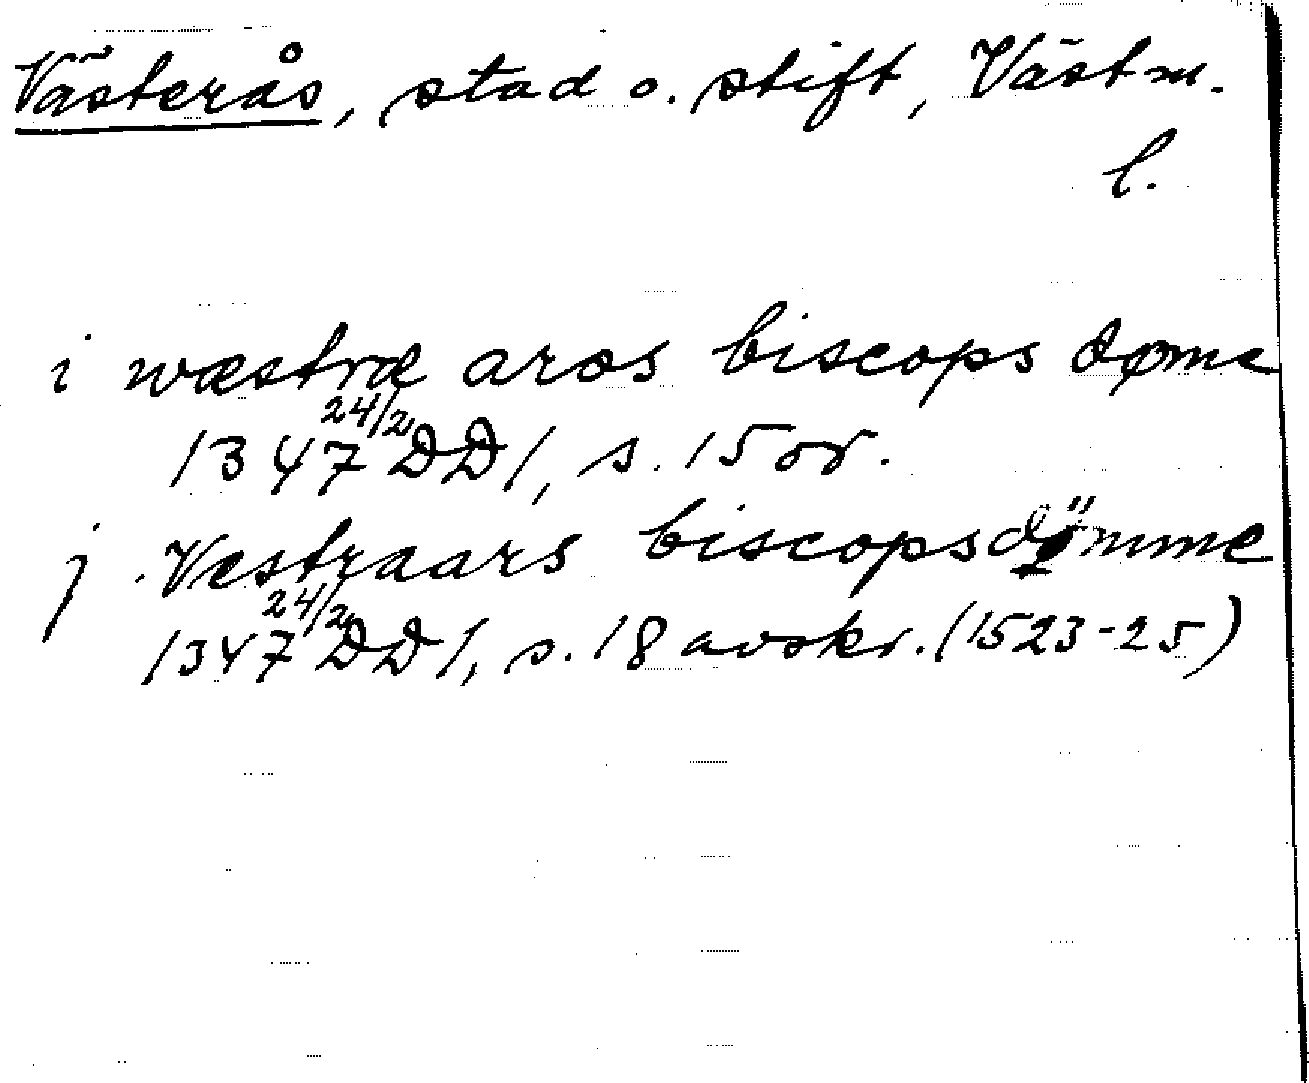 Västerås, stad o. stift, Västm.
l.
i wæstræ aros biscops døme
1347 24/2 DD1, s. 15 or.
j Vestraars biscopsdömme
1347 24/2 DD1, s. 18 avskr. (1523-25)